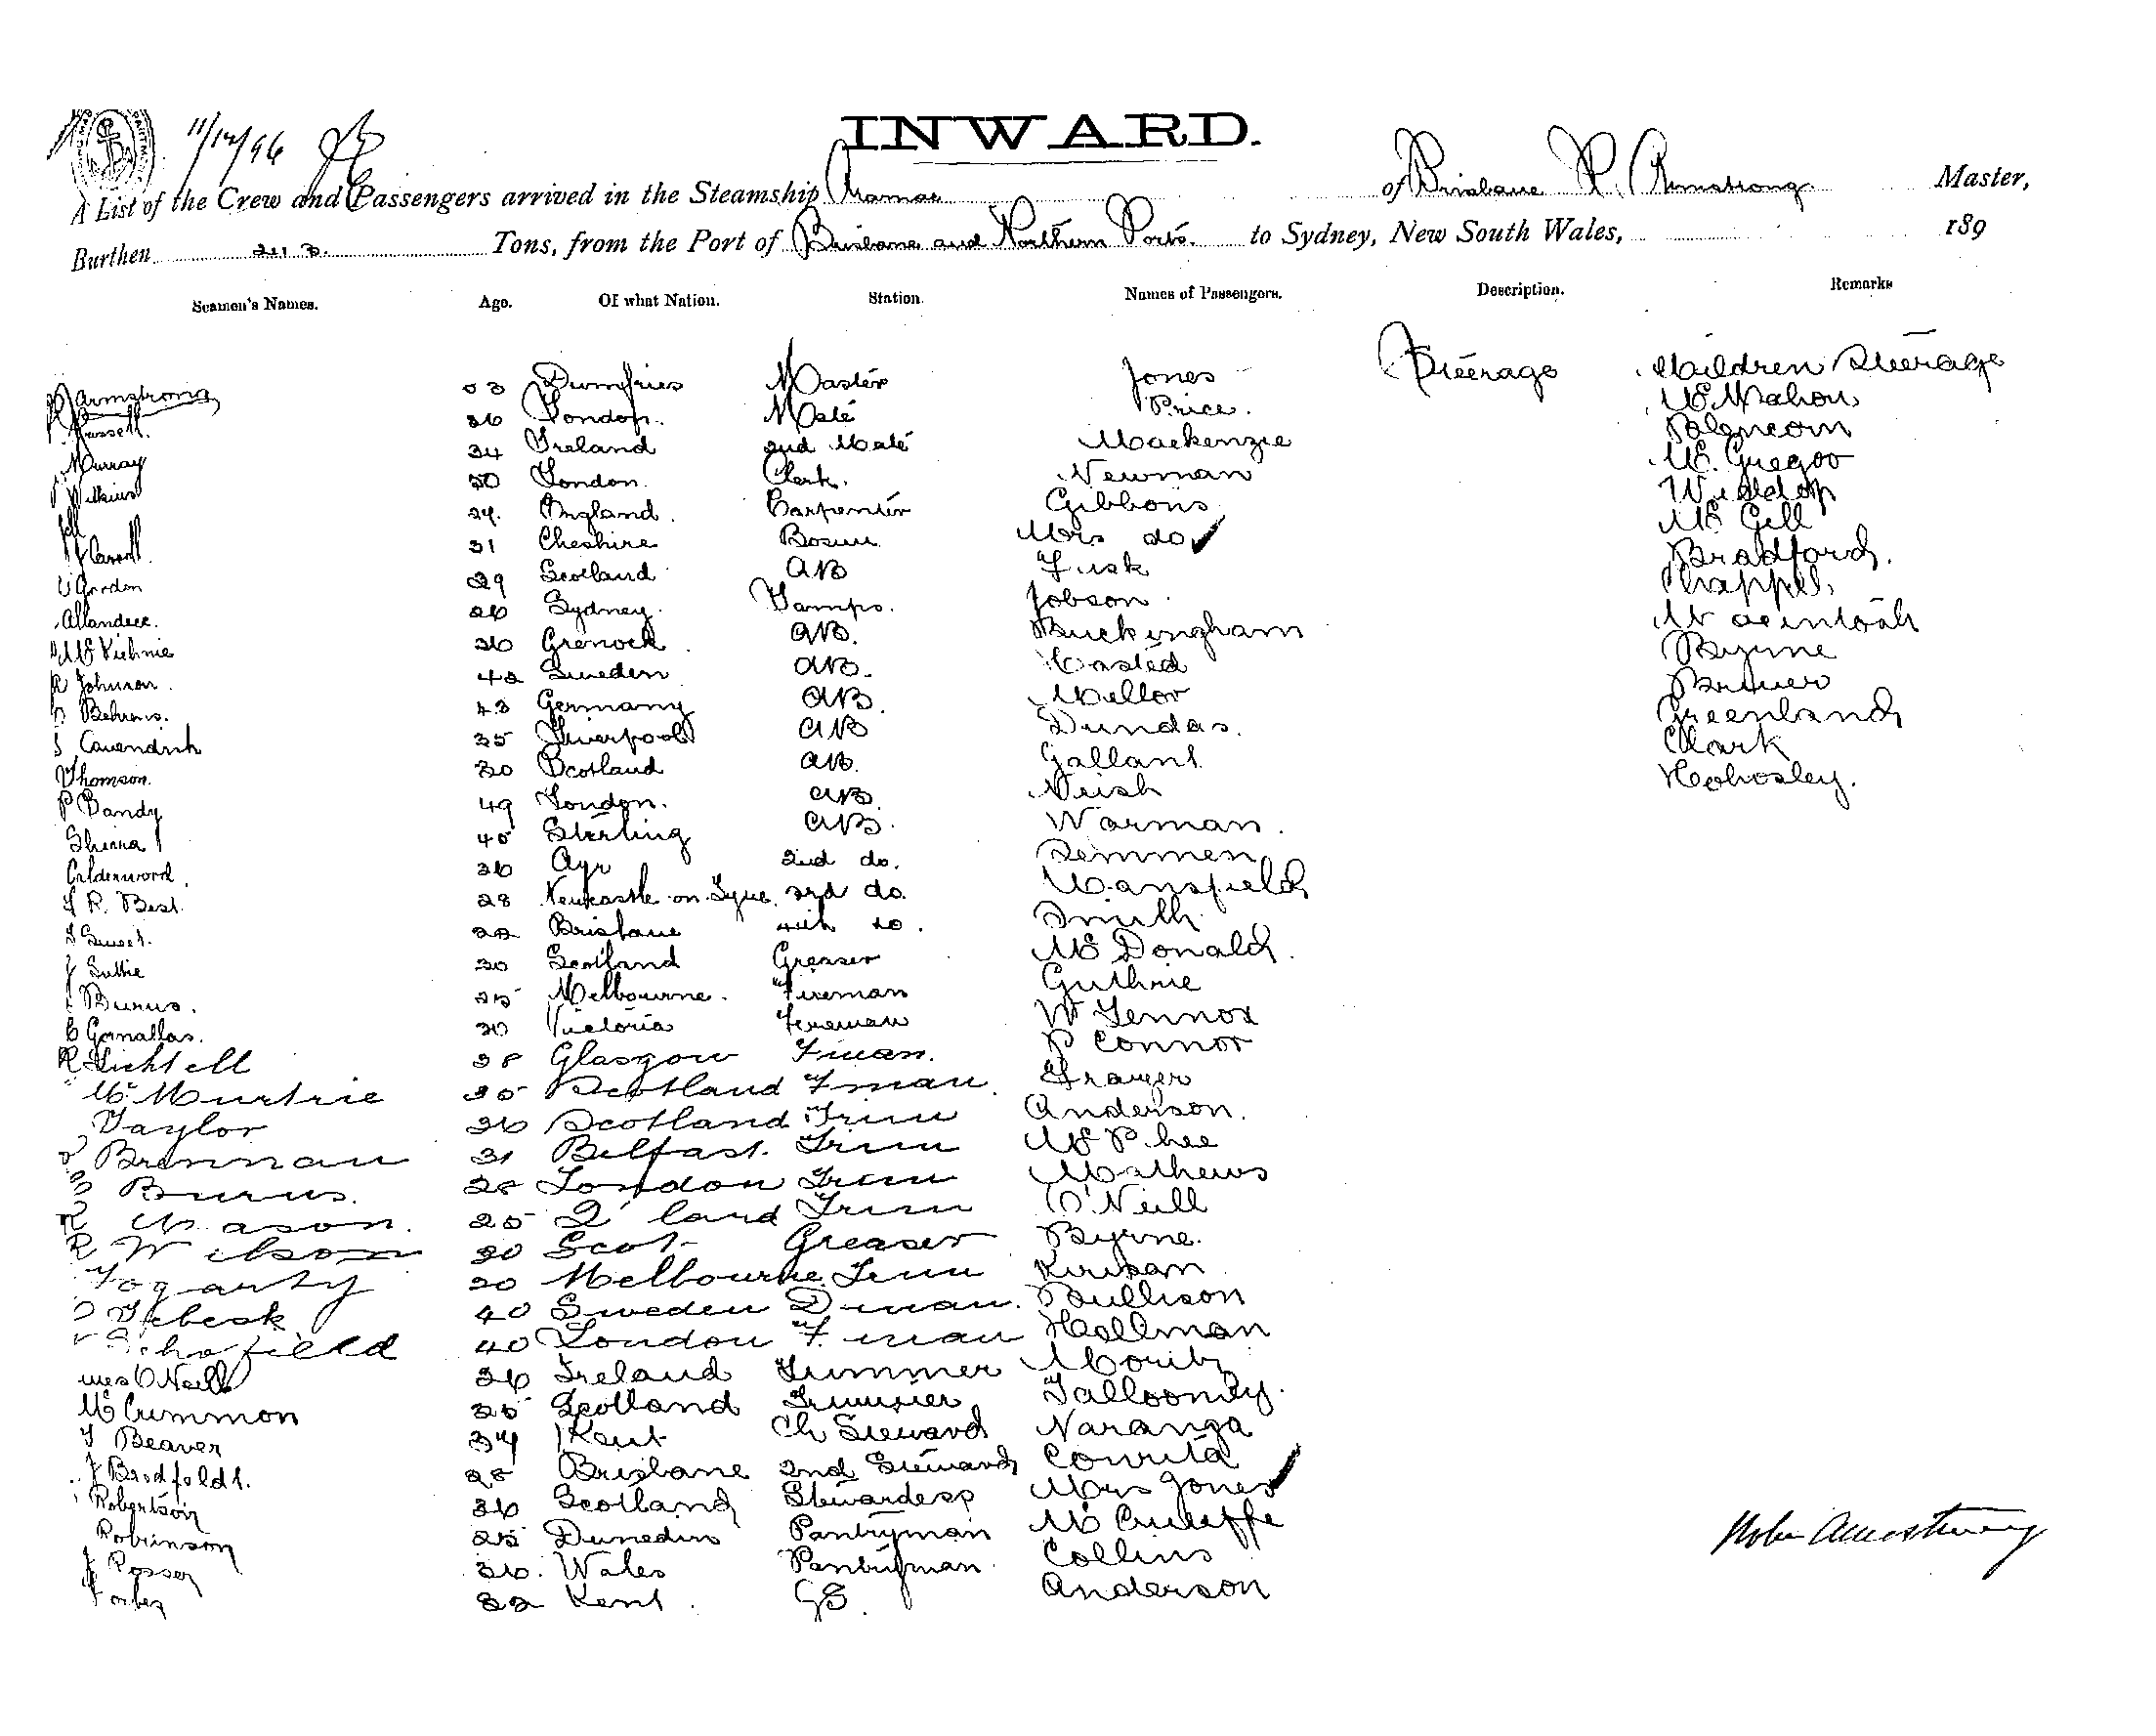 11/12/96
INWARD.
A List of the Crew and Passengers arrived in the Steamship Aramac of Brisbane R. Armstrong Master,
Burthen 2113 Tons, from the Port of Brisbane and Northern Ports. to Sydney, New South Wales, 189
Seamen's Names. Age. Of what Nation. Station. Names of Passengers. Description. Remarks
R Armstrong 53 Dumfries Master Jones Steerage Children Steerage
Russell. 36 London. Mate Price. McMahon
Murray 34 Ireland 2nd Mate Mackenzie
Wilkins 30 London. Clerk. Newman McGregor
24. England. Carpenter Gibbons Widdop
Carroll. 31 Cheshire Bosun Mrs do McGill
Gordon 29 Scotland AB Fisk Bradford.
26 Sydney. Lamps. Jobson Chappel,
36 Grenock AB. Buckingham Macintosh
Johnson. 42 Sweden AB. Hasted Byrne
Behrens. 43 Germany AB. Mellor
Cavendish 35 Liverpool AB Dundas. Greenland
Thomson. 30 Scotland AB. Gallant Clark
P Bandy 49 London. AB. Neish
45 Sterling AB. Warman.
Calderwood. 36 Ayr 2nd do. Semmen
R. Best. 28 Newcastle on Tyne. 3rd do. Mansfield
Sweet. 22 Brisbane 4th do. Smith
30 Scotland Greaser McDonald.
Burns. 25 Melbourne. Fireman Guthrie
30 Victoria Fireman W Lennox
R 38 Glasgow F man. P Connor
McMurtrie 35 Scotland F man.
Taylor 36 Scotland Trim Anderson.
Brennan 31 Belfast. Trim McPhee
Burns. 28 London Trim Mathews
R Mason. 25 Q'land Trim O'Neill
R Wilson 30 Scot Greaser Byrne.
Fogarty 30 Melbourne Trim
40 Sweden
Schofield 40 London F. man Hallman
O'Neill 36 Ireland Trimmer
McCrummon 35 Scotland Trimmer
Beaver 34 Kent Ch Steward Naranga
28 Brisbane 2nd Steward
Robertson 36 Scotland Stewardess Mrs Jones
Robinson 25 Dunedin Pantryman
J Rosser 36. Wales Pantryman. Collins
Forbes 32 Kent. GS. Anderson